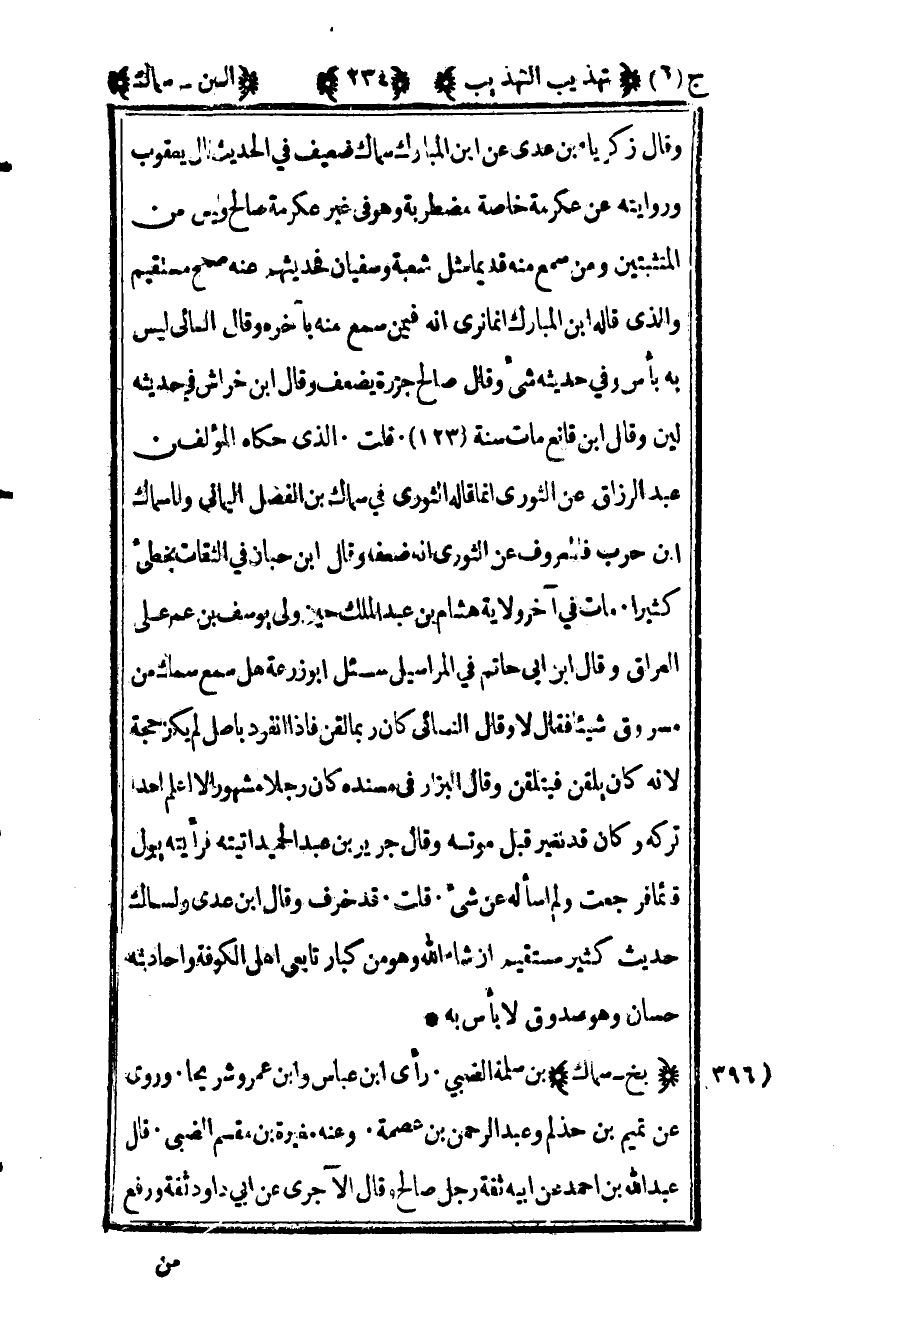 ج (٦) ﴿ تهذيب التهذيب ﴾ ﴿ ٢٣٤ ﴾ ﴿ السين - سماك ﴾
وقال زكرياء بن عدى عن ابن المبارك سماك ضعيف في الحديث قال يعقوب
وروايته عن عكرمة خاصة مضطربة وهو في غير عكرمة صالح وليس من
المتثبتين ومن سمع منه قديما مثل شعبة وسفيان فحديثهم عنه صحيح مستقيم
والذى قاله ابن المبارك انما نرى انه فيمن سمع منه بآخره وقال النسائى ليس
به بأس وفي حديثه شئ وقال صالح جزرة يضعف وقال ابن خراش في حديثه
لين وقال ابن قانع مات سنة (١٢٣) ٠ قلت ٠ الذى حكاه المؤلف عن
عبد الرزاق عن الثورى انما قاله الثورى في سماك بن الفضل اليماني واما سماك
ابن حرب فالمعروف عن الثورى انه ضعفه وقال ابن حبان في الثقات يخطئ
كثيرا ٠ مات في آخر ولاية هشام بن عبد الملك حين ولى يوسف بن عمر على
العراق وقال ابن ابى حاتم في المراسيل سئل ابو زرعة هل سمع سماك من
مسروق شيئا فقال لا وقال النسائى كان ربما لقن فاذا انفرد باصل لم يكن حجة
لانه كان يلقن فيتلقن وقال البزار في مسنده كان رجلا مشهورا لا اعلم احدا
تركه وكان قد تغير قبل موته وقال جرير بن عبد الحميد اتيته فرأيته يبول
قائما فرجعت ولم اسأله عن شئ ٠ قلت ٠ قد خرف وقال ابن عدى ولسماك
حديث كثير مستقيم ان شاء الله وهو من كبار تابعى اهل الكوفة واحاديثه
حسان وهو صدوق لا بأس به ●
(٣٩٦ ﴿ بخ - سماك ﴾ بن سلمة الضبي ٠ رأى ابن عباس وابن عمر وشريحا ٠ وروى
عن تميم بن حذلم وعبد الرحمن بن عصمة ٠ وعنه مغيرة بن مقسم الضبى ٠ قال
عبد الله بن احمد عن ابيه ثقة رجل صالح وقال الآجرى عن ابي داود ثقة ورفع
من